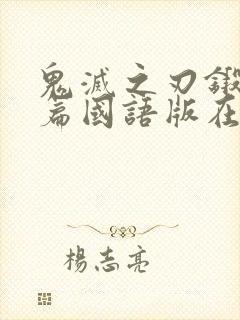 鬼滅之刃鍛
篇國語版在
楊志亮